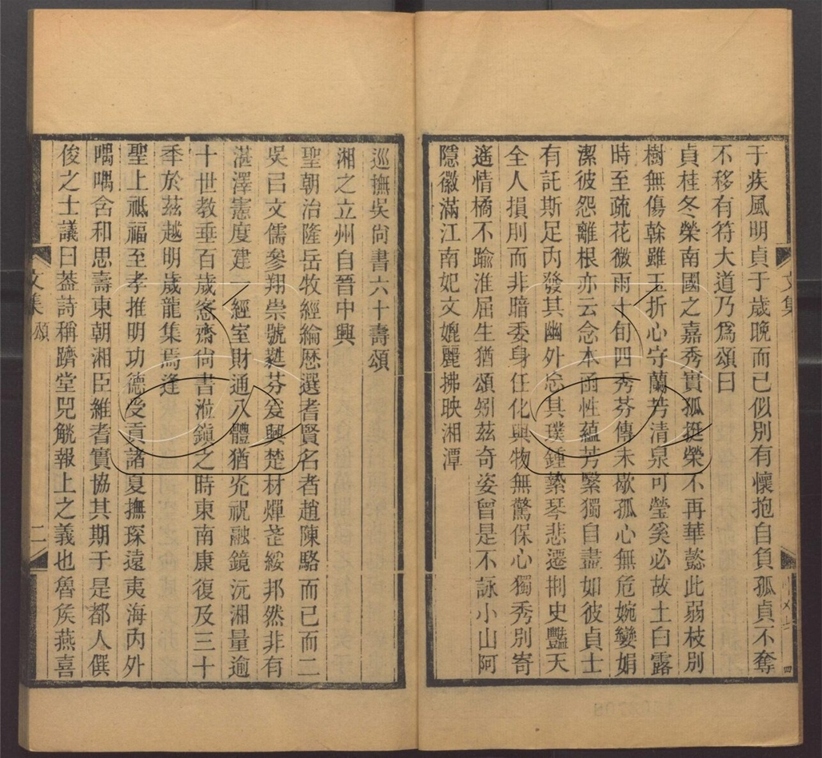 于疾風明貞于歲晚而已似別有懷抱自負孤貞不奪
不移有符大道乃爲頌曰
貞桂冬榮南國之嘉秀實孤挺榮不再華懿此弱枝別
樹無傷榦雖玉折心守蘭芳清泉可瑩奚必故土白露
時至疏花微雨十旬四秀芬傳未歇孤心無危婉孌娟
潔彼怨離根亦云念本函性蘊芳繄獨自盡如彼貞士
有託斯足內發其幽外忘其璞鍾縈琴悲遷荆史豔天
全人損刖而非暗委身任化與物無驚保心獨秀別寄
遙情橘不踰淮屈生猶頌矧茲奇姿曾是不詠小山阿
隱徽滿江南妃文媲麗拂映湘潭
文集
巡撫吳尙書六十壽頌
湘之立州自晉中興
聖朝治隆岳牧經綸歷選耆賢名者趙陳駱而已而二
吳曰文儒參翔崇號蕤芬爰興楚材燀茝綏邦然非有
湛澤憲度建一經室財通八體猶灮視融鏡沅湘量逾
十世教垂百歲愙齋尙書涖鎮之時東南康復及三十
季於茲越明歲龍集焉逢
聖上祗福至孝推明功德受貢諸夏撫琛遠夷海內外
喁喁含和思壽東朝湘臣維耆實協其期于是都人僎
俊之士議曰葢詩稱躋堂兕觥報上之義也魯矦燕喜
文集 頌 二